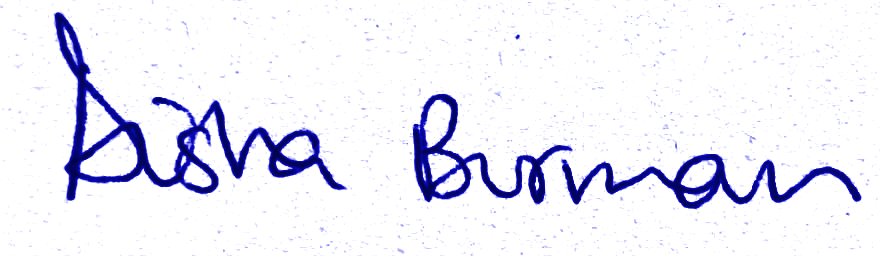 Disha Burman